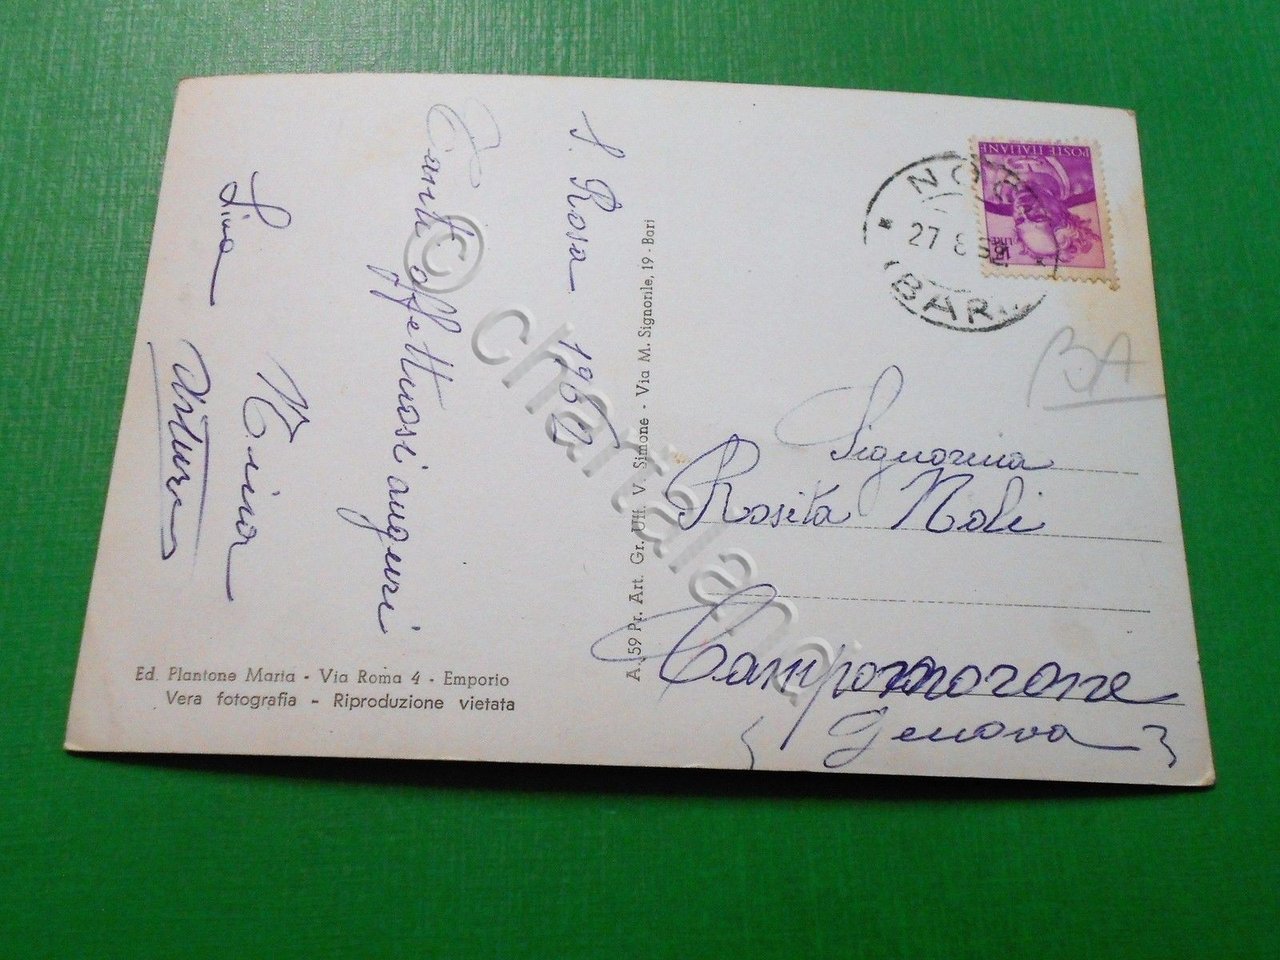 S. Rosa 1962
Tanti affettuosi auguri
Lina
Tina
Arturo
Ed. Plantone Maria - Via Roma 4 - Emporio
Vera fotografia - Riproduzione vietata
A. 59 Pr. Art. Gr. Uff. V. Simone - Via M. Signorile, 19 - Bari
POSTE ITALIANE
LIRE 15
27 8
BA
Signorina
Rosita Noli
Campomorone
(Genova)
© chartaland